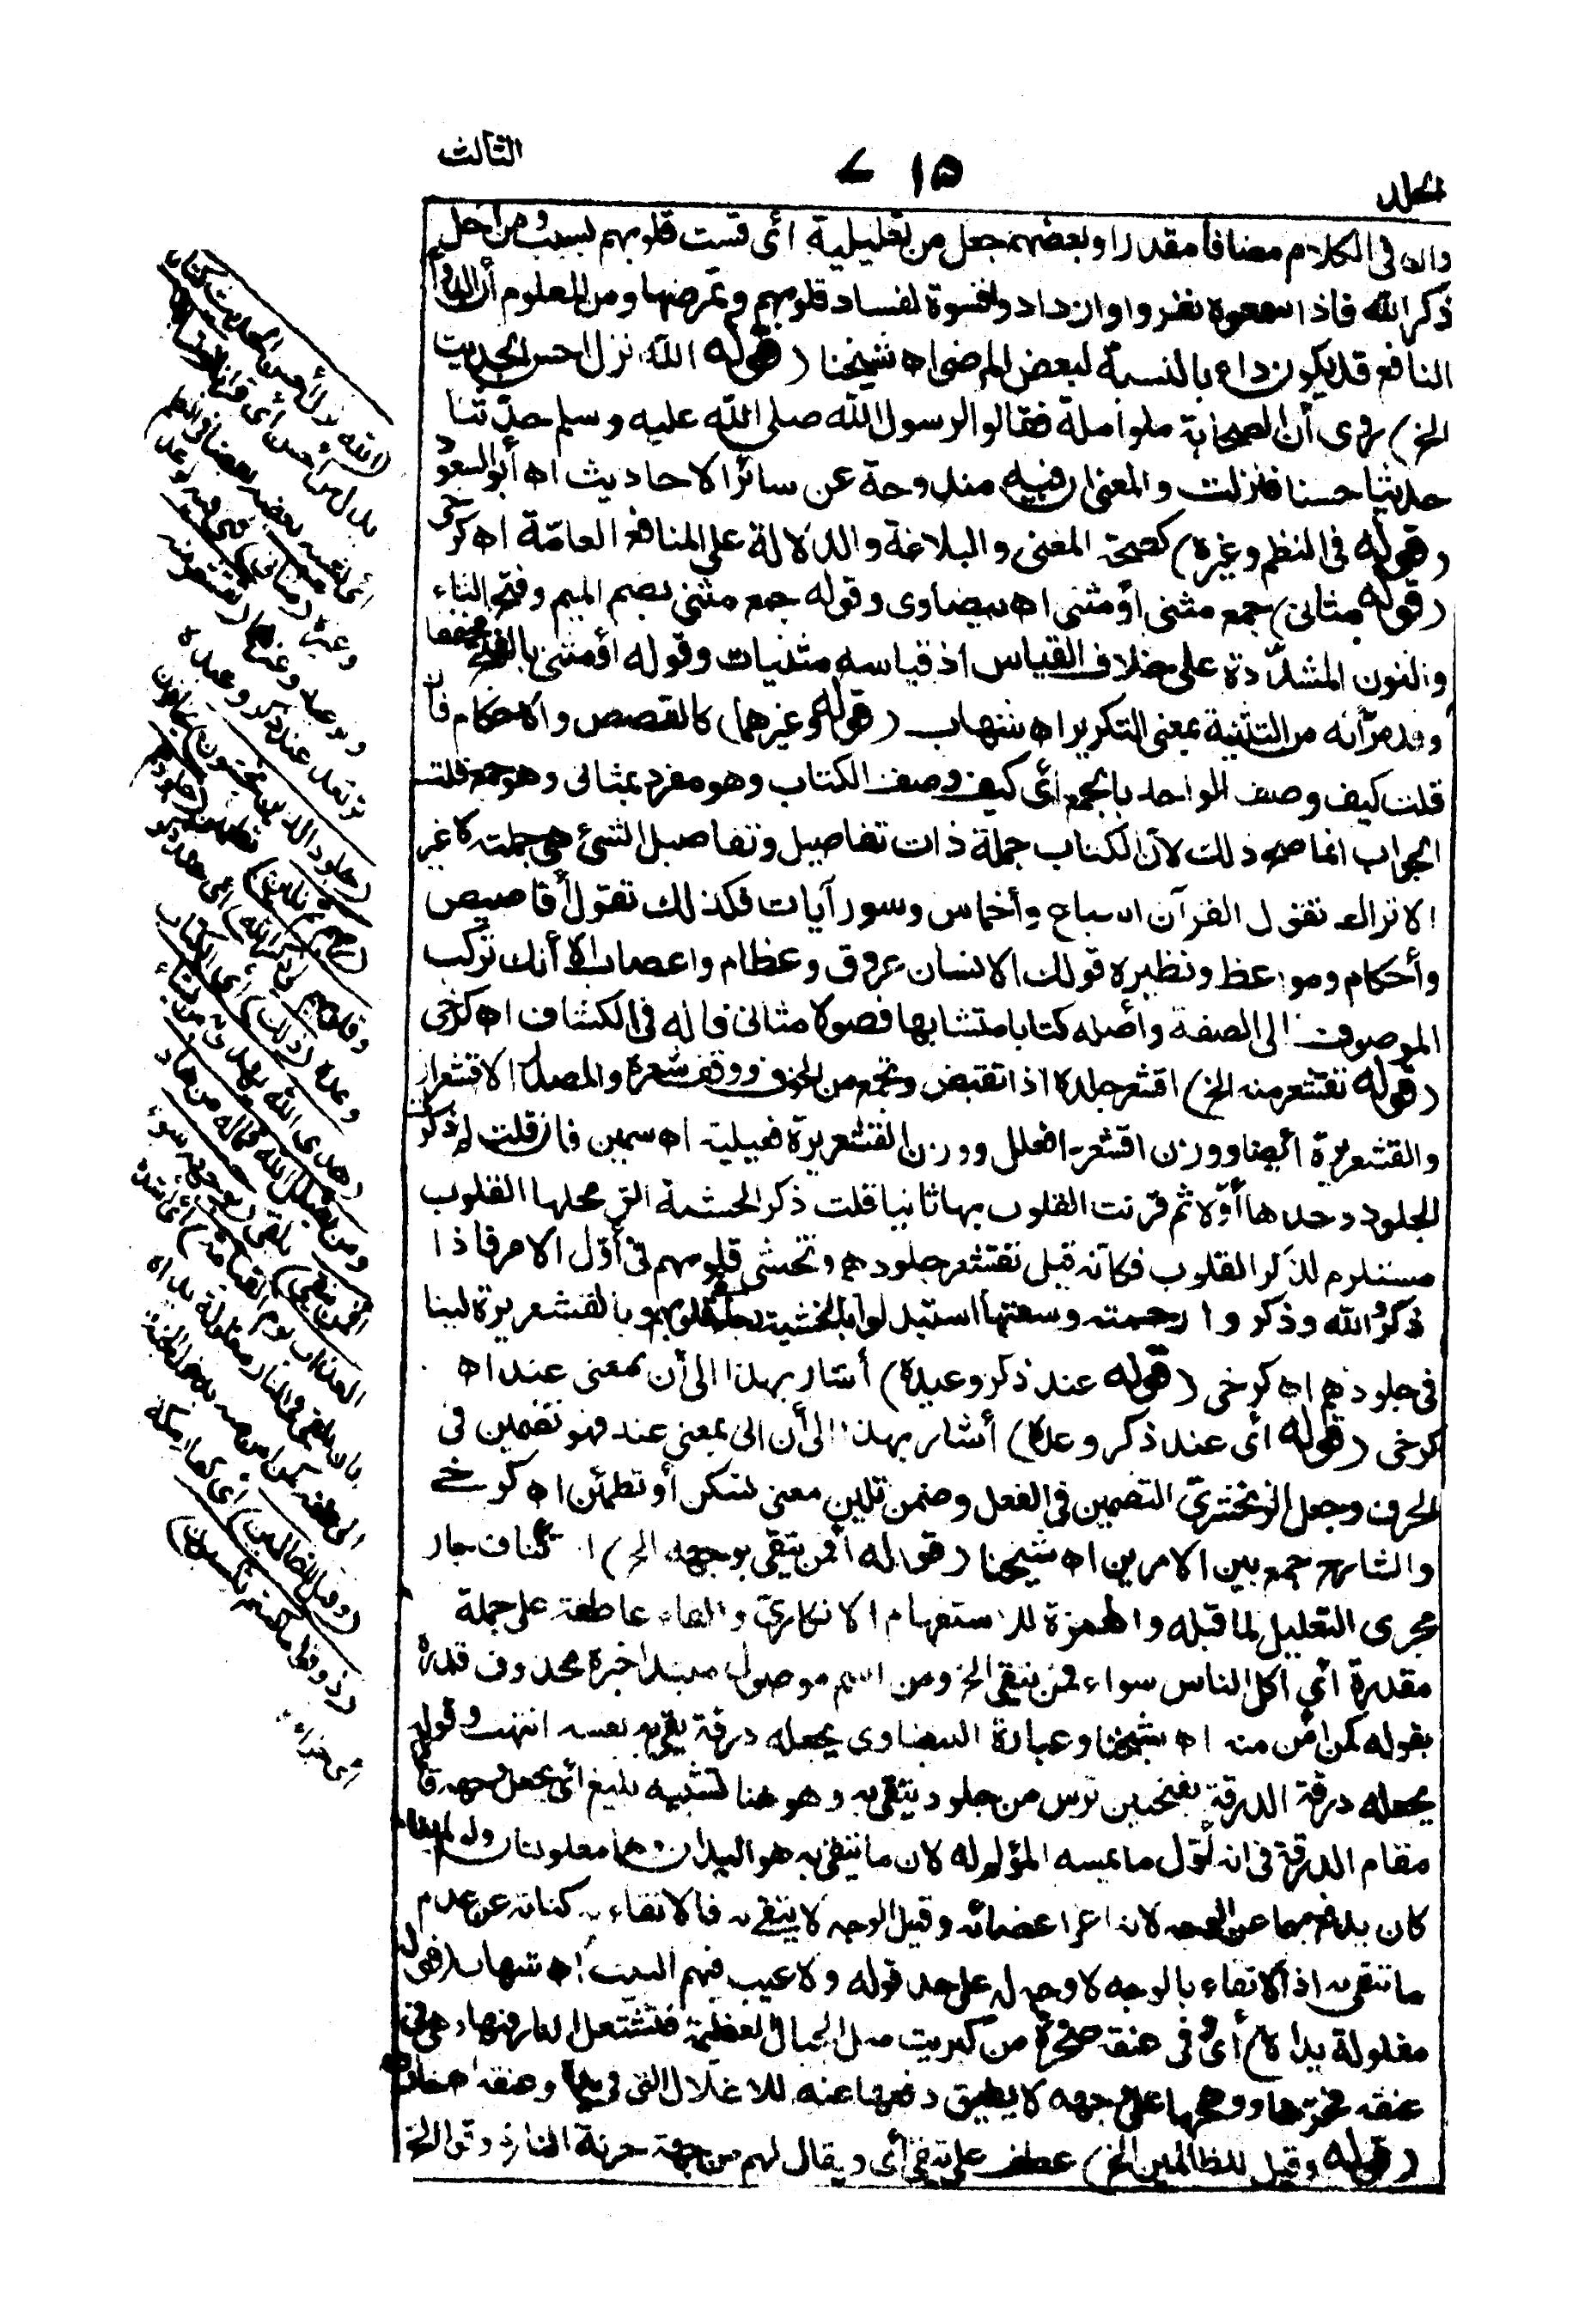 الثالث
١٥ ٧
المجلد
وان فى الكلام مضافا مقدرا وبعضهم جعل من تعليلية أى قست قلوبهم بسبب ومن أجل
ذكر الله فاذا سمعوه نفروا وازدادوا قسوة لفساد قلوبهم وتمرضها ومن المعلوم أن الدواء
النافع قد يكون داء بالنسبة لبعض المرضى اه شيخنا (قوله الله نزل احسن الحديث
الخ) روى أن الصحابة ملوا ملة فقالوا لرسول الله صلى الله عليه وسلم حدّثنا
حديثا حسنا فنزلت والمعنى ان فيه مندوحة عن سائر الاحاديث اه أبو السعود
(قوله فى النظم وغيره) كصحة المعنى والبلاغة والدلالة على المنافع العامّة اه كرخى
(قوله مثانى) جمع مثنى أو مثنى اه بيضاوى وقوله جمع مثنى بضم الميم وفتح الثاء
والنون المشدّدة على خلاف القياس اذ قياسه مثنيات وقوله أو مثنى بالفتح مخففا
وقد مرّ أنه من التثنية بمعنى التكرير اه شهاب (قوله وغيرهما) كالقصص والاحكام فان
قلت كيف وصف الواحد بالجمع أى كيف وصف الكتاب وهو مفرد بمثانى وهو جمع قلت
الجواب انما صح ذلك لان الكتاب جملة ذات تفاصيل وتفاصيل الشئ هى جملته لا غير
الا تراك تقول القرآن اسباع وأخماس وسور آيات فكذلك تقول أقاصيص
وأحكام ومواعظ ونظيره قولك الانسان عروق وعظام واعصاب الا أنك تركب
الموصوف الى الصفة وأصله كتابا متشابها فصولا مثانى قاله فى الكشاف اه كرخى
(قوله تقشعر منه الخ) اقشعر جلده اذا تقبض وتجمع من الخوف ووقف شعره والمصدر الاقشعرار
والقشعريرة أيضا ووزن اقشعر افعلل ووزن القشعريرة فعليلة اه سمين فان قلت لم ذكرت
الجلود وحدها أوّلا ثم قرنت القلوب بها ثانيا قلت ذكر الخشية التى محلها القلوب
مستلزم لذكر القلوب فكأنه قيل تقشعر جلودهم وتخشى قلوبهم فى أوّل الامر فاذا
ذكروا الله وذكروا رحمته وسعتها استبدلوا بالخشية رجاء فى قلوبهم وبالقشعريرة لينا
فى جلودهم اه كرخى (قوله عند ذكر وعيده) أشار بهذا الى أن بمعنى عند اه
كرخى (قوله أى عند ذكر وعده) أشار بهذا الى أن الى بمعنى عند فهو تضمين فى
الحرف وجعل الزمخشرىّ التضمين فى الفعل وضمن تلين معنى تسكن أو تطمئن اه كرخى
والشارح جمع بين الامرين اه شيخنا (قوله أفمن يتقى بوجهه الخ) استئناف جار
مجرى التعليل لما قبله والهمزة للاستفهام الانكارىّ والفاء عاطفة على جملة
مقدرة أى أكل الناس سواء فمن يتقى الخ ومن اسم موصول مبتدا خبره محذوف قدره
بقوله كمن امن منه اه شيخنا وعبارة البيضاوى يجعله درقة يقى به نفسه انتهت وقوله
يجعله درقة الدرقة بفتحتين ترس من جلود يتقى به وهو هنا تشبيه بليغ أى يجعل وجهه قائما
مقام الدرقة فى انه أوّل ما يمسه المؤلم له لان ما يتقى به هو اليدان وهما مغلولتان ولو لم يغلا
كان يدفع بهما عن الوجه لانه اعز اعضائه وقيل الوجه لا يتقى به فالاتقاء به كناية عن عدم
ما يتقى به اذ الاتقاء بالوجه لا وجه له على حد قوله ولا عيب فيهم البيت اه شهاب (قوله
مغلولة يداه) أى وفى عنقه صخرة من كبريت مثل الجبال العظيمة فتشتعل النار فيها وهى فى
عنقه فحرّها ووهجها على وجهه لا يطيق دفعها عنه للاغلال التى فى يديه وعنقه اه خازن
(قوله وقيل للظالمين الخ) عطف على يتقى أى ويقال لهم من جهة خزنة النار ذوقوا الخ
(الله نزل أحسن الحديث كتابا)
بدل من أحسن أى قرآنا (متشابها)
أى يشبه بعضه بعضا فى النظم
وغيره (مثانى) ثنى فيه الوعد
والوعيد وغيرهما (تقشعر منه)
ترتعد عند ذكر وعيده
(جلود الذين يخشون) يخافون
(ربهم ثم تلين) تطمئن (جلودهم
وقلوبهم الى ذكر الله) أى عند ذكر
وعده (ذلك) أى الكتاب
(هدى الله يهدى به من يشاء
ومن يضلل الله فما له من هاد
أفمن يتقى) يلقى (بوجهه سوء
العذاب يوم القيامة) أى أشده
بأن يلقى فى النار مغلولة يداه
الى عنقه كمن أمن منه بدخول الجنة
(وقيل للظالمين) أى كفار مكة
(ذوقوا ما كنتم تكسبون)
أى جزاءه